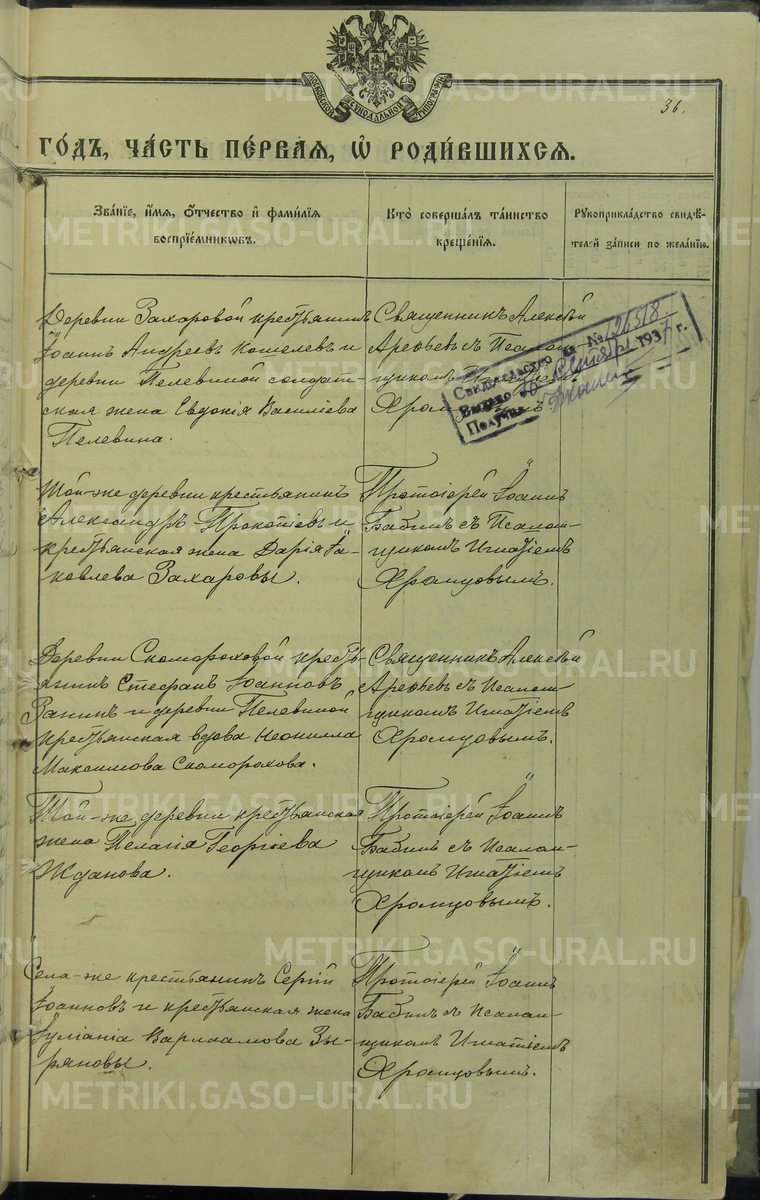 МОСКОВСКОЙ СѴНОДАЛЬНОЙ ТИПОГРАФІИ
36.
ГО́ДЪ, ЧА́СТЬ ПЕ́РВАЯ, Ѽ РОДИ́ВШИХСЯ.
Зва́нїе, и́мя, о́тчество и҆ фами́лїя
воспрїе́мникѡвъ.
Кто̀ соверша́лъ та́инство
креще́нїя.
Рукоприкла́дство свидѣ́-
телей за́писи по жела́нїю.
Деревни Захаровой крестьянинъ
Іоаннъ Андреевъ Кошелевъ и
деревни Пелевиной солдат-
ская жена Евдокія Василіева
Пелевина.
Священникъ Алексѣй
Арефьевъ съ Псалом-
щикомъ
Хромцовымъ.
Свидетельство за № 126518
Выдано 1937 г.
Получил
Той-же деревни крестьянинъ
Александръ Прокопіевъ и
крестьянская жена Дарія Іа-
ковлева Захаровы.
Протоіерей Іоаннъ
Бабинъ съ Псалом-
щикомъ Игнатіемъ
Хромцовымъ.
Деревни Скомороховой кресть-
янинъ Стефанъ Іоанновъ
Занинъ и деревни Пелевиной
крестьянская вдова Неонилла
Максимова Скоморохова.
Священникъ Алексѣй
Арефьевъ съ Псалом-
щикомъ Игнатіемъ
Хромцовымъ.
Той-же деревни крестьянская
жена Пелагія Георгіева
Жданова.
Протоіерей Іоаннъ
Бабинъ съ Псалом-
щикомъ Игнатіемъ
Хромцовымъ.
Села-же крестьянинъ Сергій
Іоанновъ и крестьянская жена
Іуліанія Варлаамова Зы-
ряновы.
Протоіерей Іоаннъ
Бабинъ съ Псалом-
щикомъ Игнатіемъ
Хромцовымъ.
METRIKI.GASO-URAL.RU